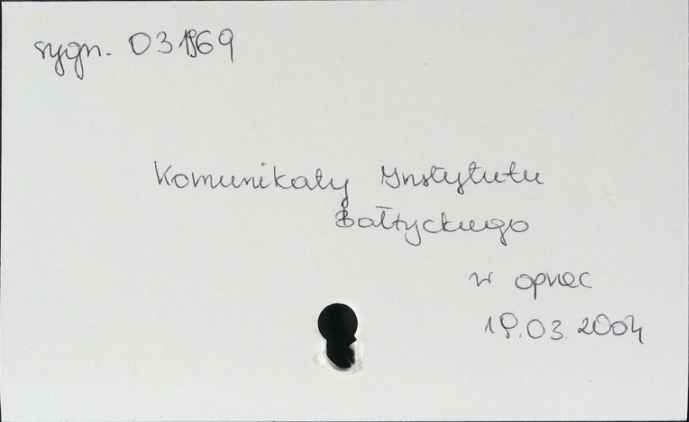 sygn. D31869
Komunikaty Instytutu
Bałtyckiego
w oprac
19.03.2004